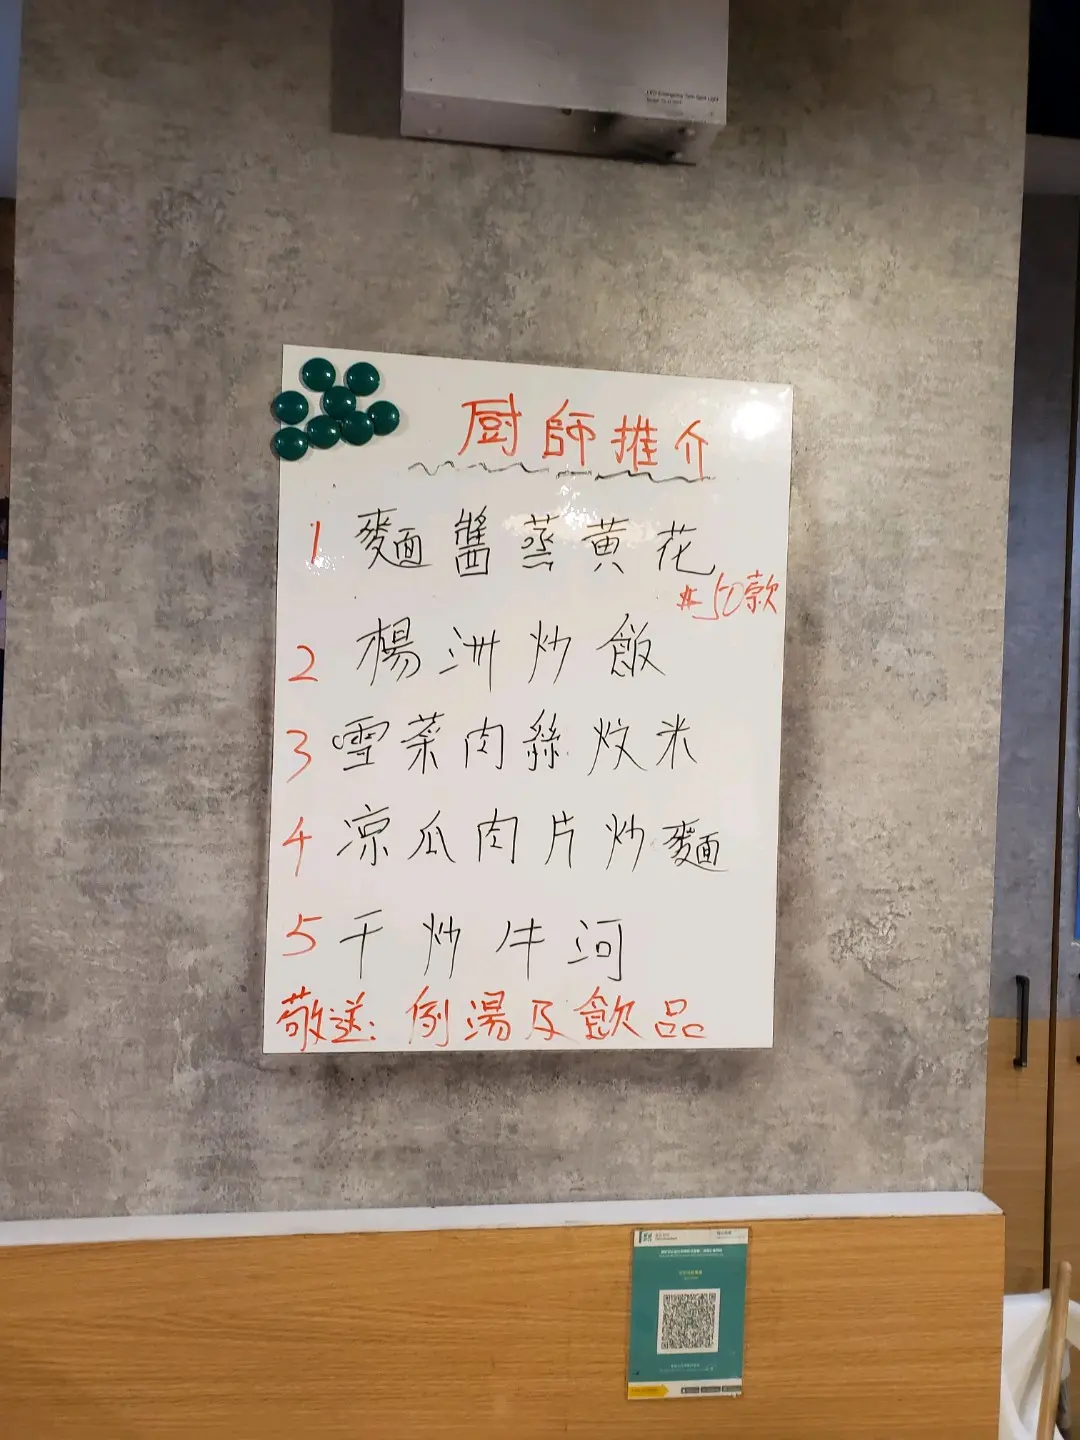 厨師推介
1 麵醬蒸黄花
$50款
2 楊洲炒飯
3 雪菜肉絲炆米
4 凉瓜肉片炒麵
5 干炒牛河
敬送: 例湯及飲品